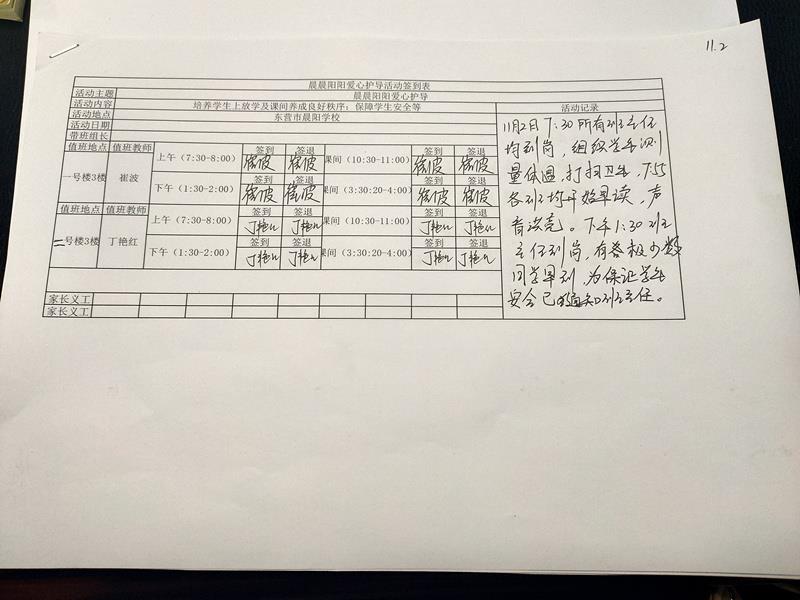 11.2
晨晨阳阳爱心护导活动签到表
活动主题 晨晨阳阳爱心护导
活动内容 培养学生上放学及课间养成良好秩序；保障学生安全等 活动记录
活动地点 东营市晨阳学校
活动日期
带班组长
值班地点 值班教师 签到 签退 签到 签退
一号楼3楼 崔波 上午（7:30-8:00） 崔波 崔波 课间（10:30-11:00） 崔波 崔波
签到 签退 签到 签退
下午（1:30-2:00） 崔波 崔波 课间（3:30:20-4:00） 崔波 崔波
值班地点 值班教师 签到 签退 签到 签退
二号楼3楼 丁艳红 上午（7:30-8:00） 丁艳红 丁艳红 课间（10:30-11:00） 丁艳红 丁艳红
签到 签退 签到 签退
下午（1:30-2:00） 丁艳红 丁艳红 课间（3:30:20-4:00） 丁艳红 丁艳红
家长义工
家长义工
11月2日7:30所有班主任
均到岗，组织学生测
量体温，打扫卫生，7:55
各班均开始早读，声
音洪亮。下午1:30班主
主任到岗，有各极少数
同学早到，为保证学生
安全已通知班主任。